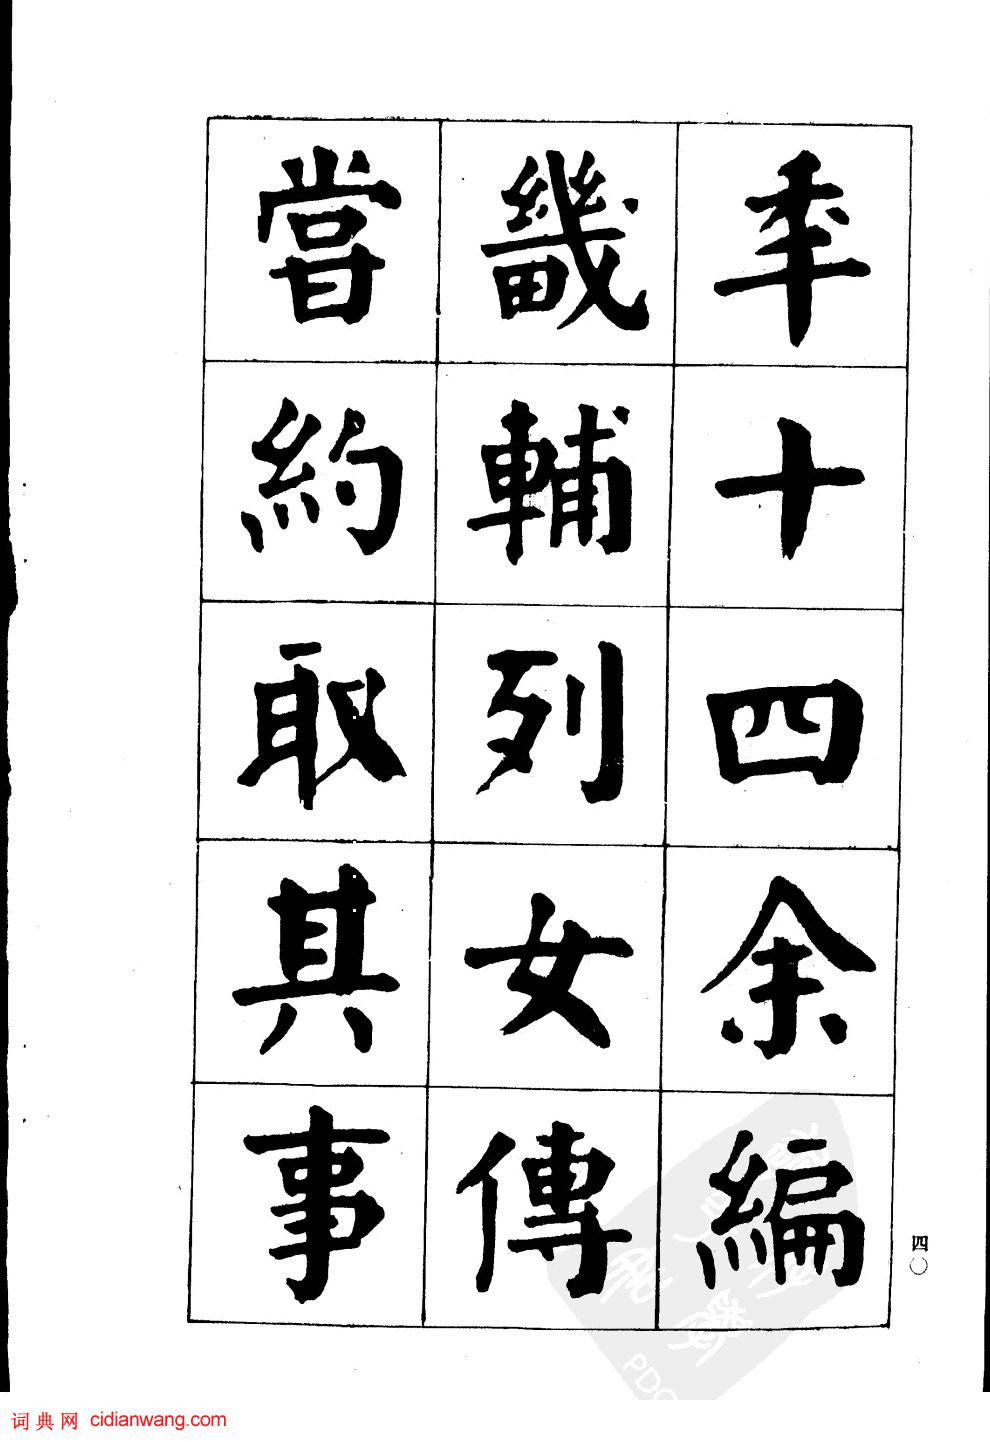 秊十四余編
畿輔列女傳
甞約取其事
四〇
词典网 cidianwang.com